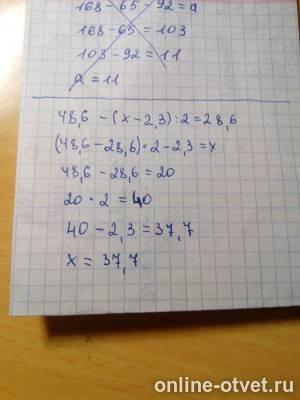 168 - 65 - 92 = a
168 - 65 = 103
103 - 92 = 11
a = 11
48,6 - (x - 2,3) : 2 = 28,6
(48,6 - 28,6) · 2 - 2,3 = x
48,6 - 28,6 = 20
20 · 2 = 40
40 - 2,3 = 37,7
x = 37,7
online-otvet.ru